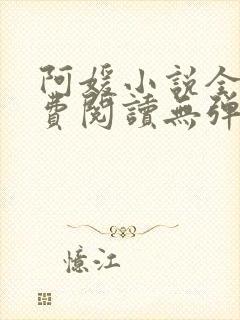 阿媛小說全
費閱讀無彈
憶江